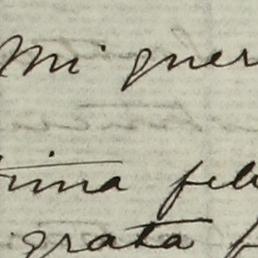 Mi quer
tima feli
grata f